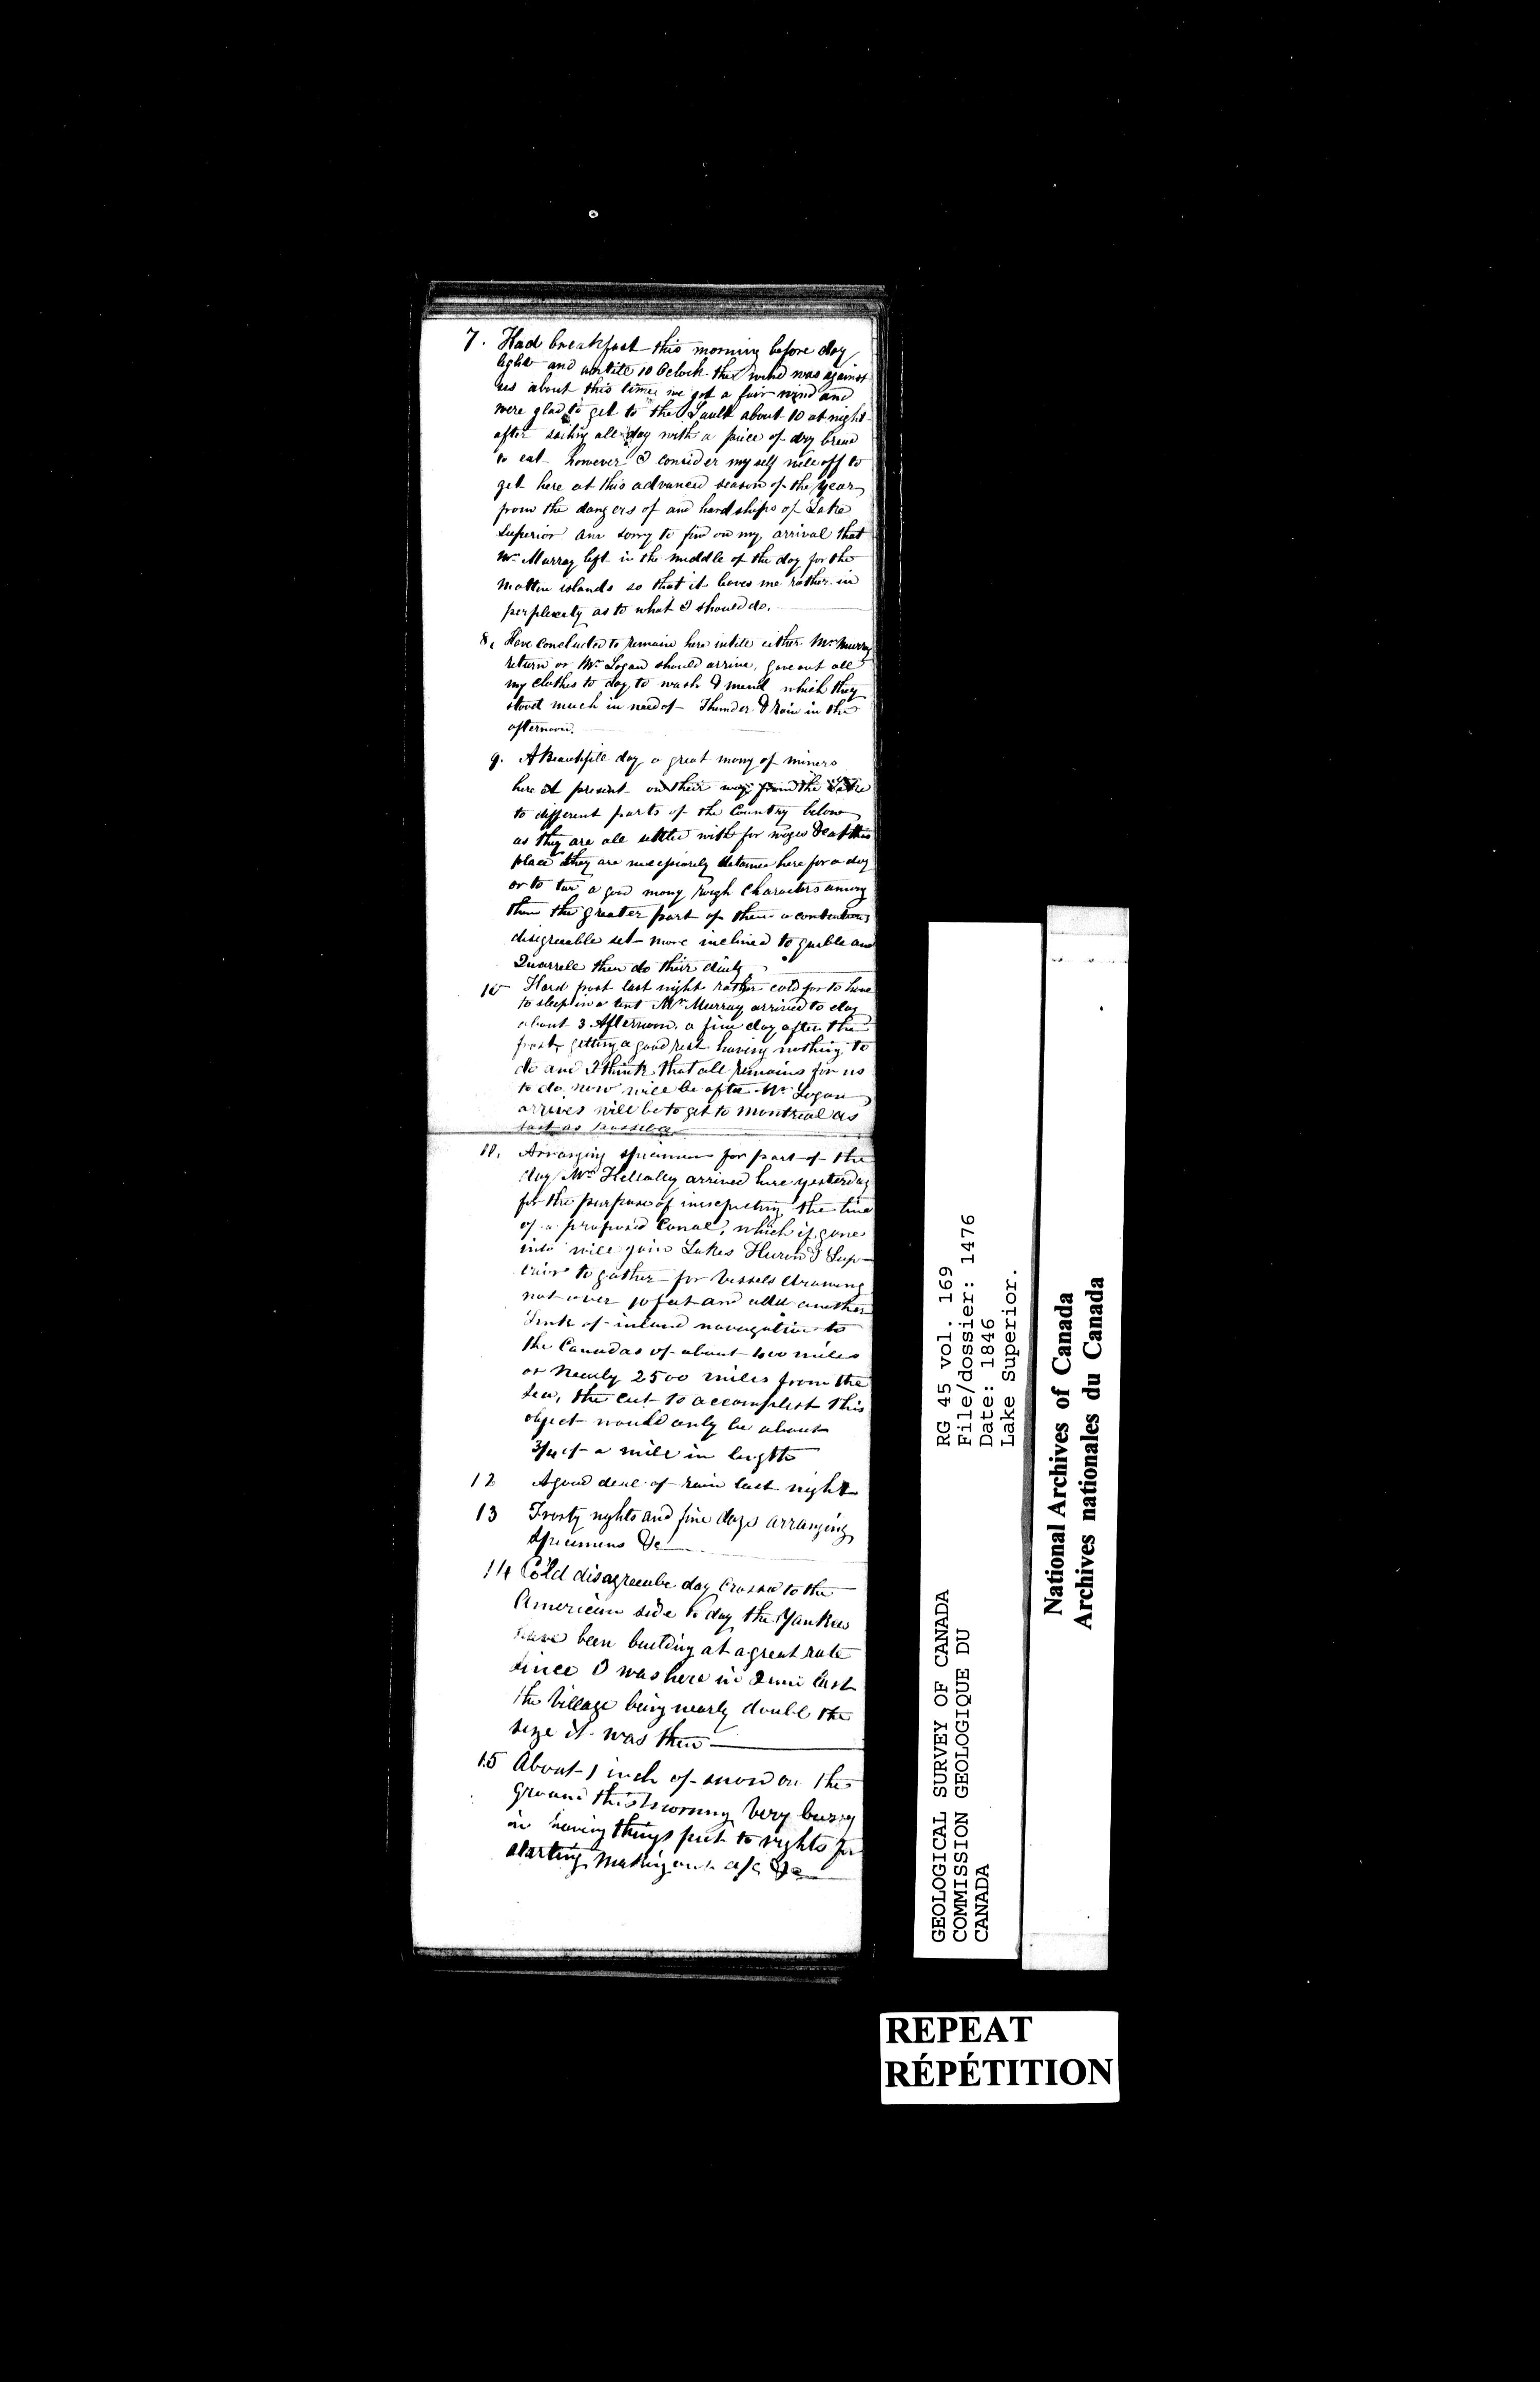 7. Had breakfast this morning before day
light and untill 10 Oclock the wind was against
us about this time we got a fair wind and
were glad to get to the Sault about 10 at night
after sailing all day with a peice of dry bread
to eat however I consider my self well off to
get here at this advanced season of the year
from the dangers of and hardships of Lake
Superior am sorry to find on my arrival that
Mr Murray left in the middle of the day for the
islands so that it leaves me rather in
perplexety as to what I should do.
8. Have concluded to remain here untill either Mr Murray
return or Mr Logan should arrive, gave out all
my clothes to day to wash & mend which they
stood much in need of Thunder & Rain in the
afternoon.
9. A Beautifull day a great many of miners
here at present on their way from the Lake
to different parts of the Country below
as they are all settled with for wages & at this
place they are necessarely detained here for a day
or to two a good many rough Characters among
them the greater part of them a contentious
disigreeable set more inclined to and
Quarrell then do their duty
10 Hard frost last night rather cold for to have
to sleep in a tent Mr Murray arrived to day
about 3 Afternoon. a fine day after the
frost, getting a good rest having nothing to
do and I think that all remains for us
to do now will be after Mr Logan
arrives will be to get to Montreal as
fast as possible
11. Arranging specimens for part of the
day Mr Killally arrived here yesterday
for the purpose of inscpecting the line
of a proposed Canal, which if gone
into will join Lakes Huron & Sup-
erior to gather for Vessels drawing
not over 10 feet and add another
link of inland navagation to
the Canadas of about 400 miles
or Nearly 2500 miles from the
Sea, the cut to accomplish this
object would only be about
3/4 of a mile in length
12 A good deal of rain last night
13 Frosty nights and fine days arranging
Specimens &c
14 Cold disagreeabe day Crossed to the
American side to day the Yankees
have been building at a great rate
since I was here in June last
the Village being nearly double the
size it was then
15 About 1 inch of snow on the
ground this morning Very bussy
in having things put to rights for
starting making out a/c &c
GEOLOGICAL SURVEY OF CANADA
COMMISSION GEOLOGIQUE DU
CANADA
RG 45 vol. 169
File/dossier: 1476
Date: 1846
Lake Superior.
National Archives of Canada
Archives nationales du Canada
REPEAT
RÉPÉTITION